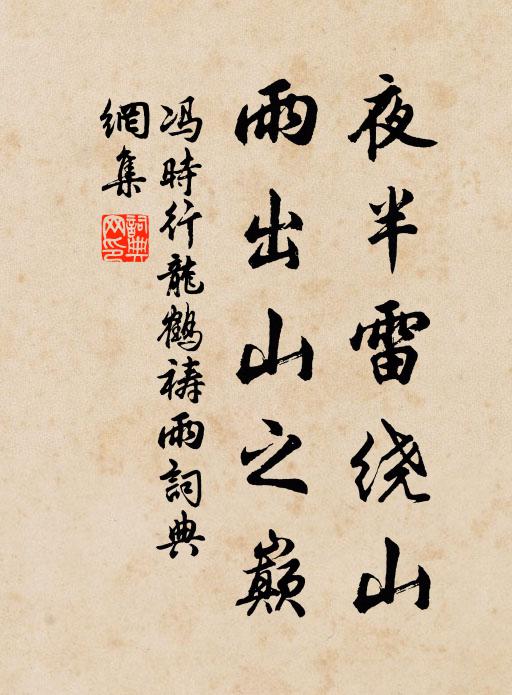 夜半雷绕山
雨出山之巅
冯時行龍鶴祷雨詞典
網集
詞典
网印